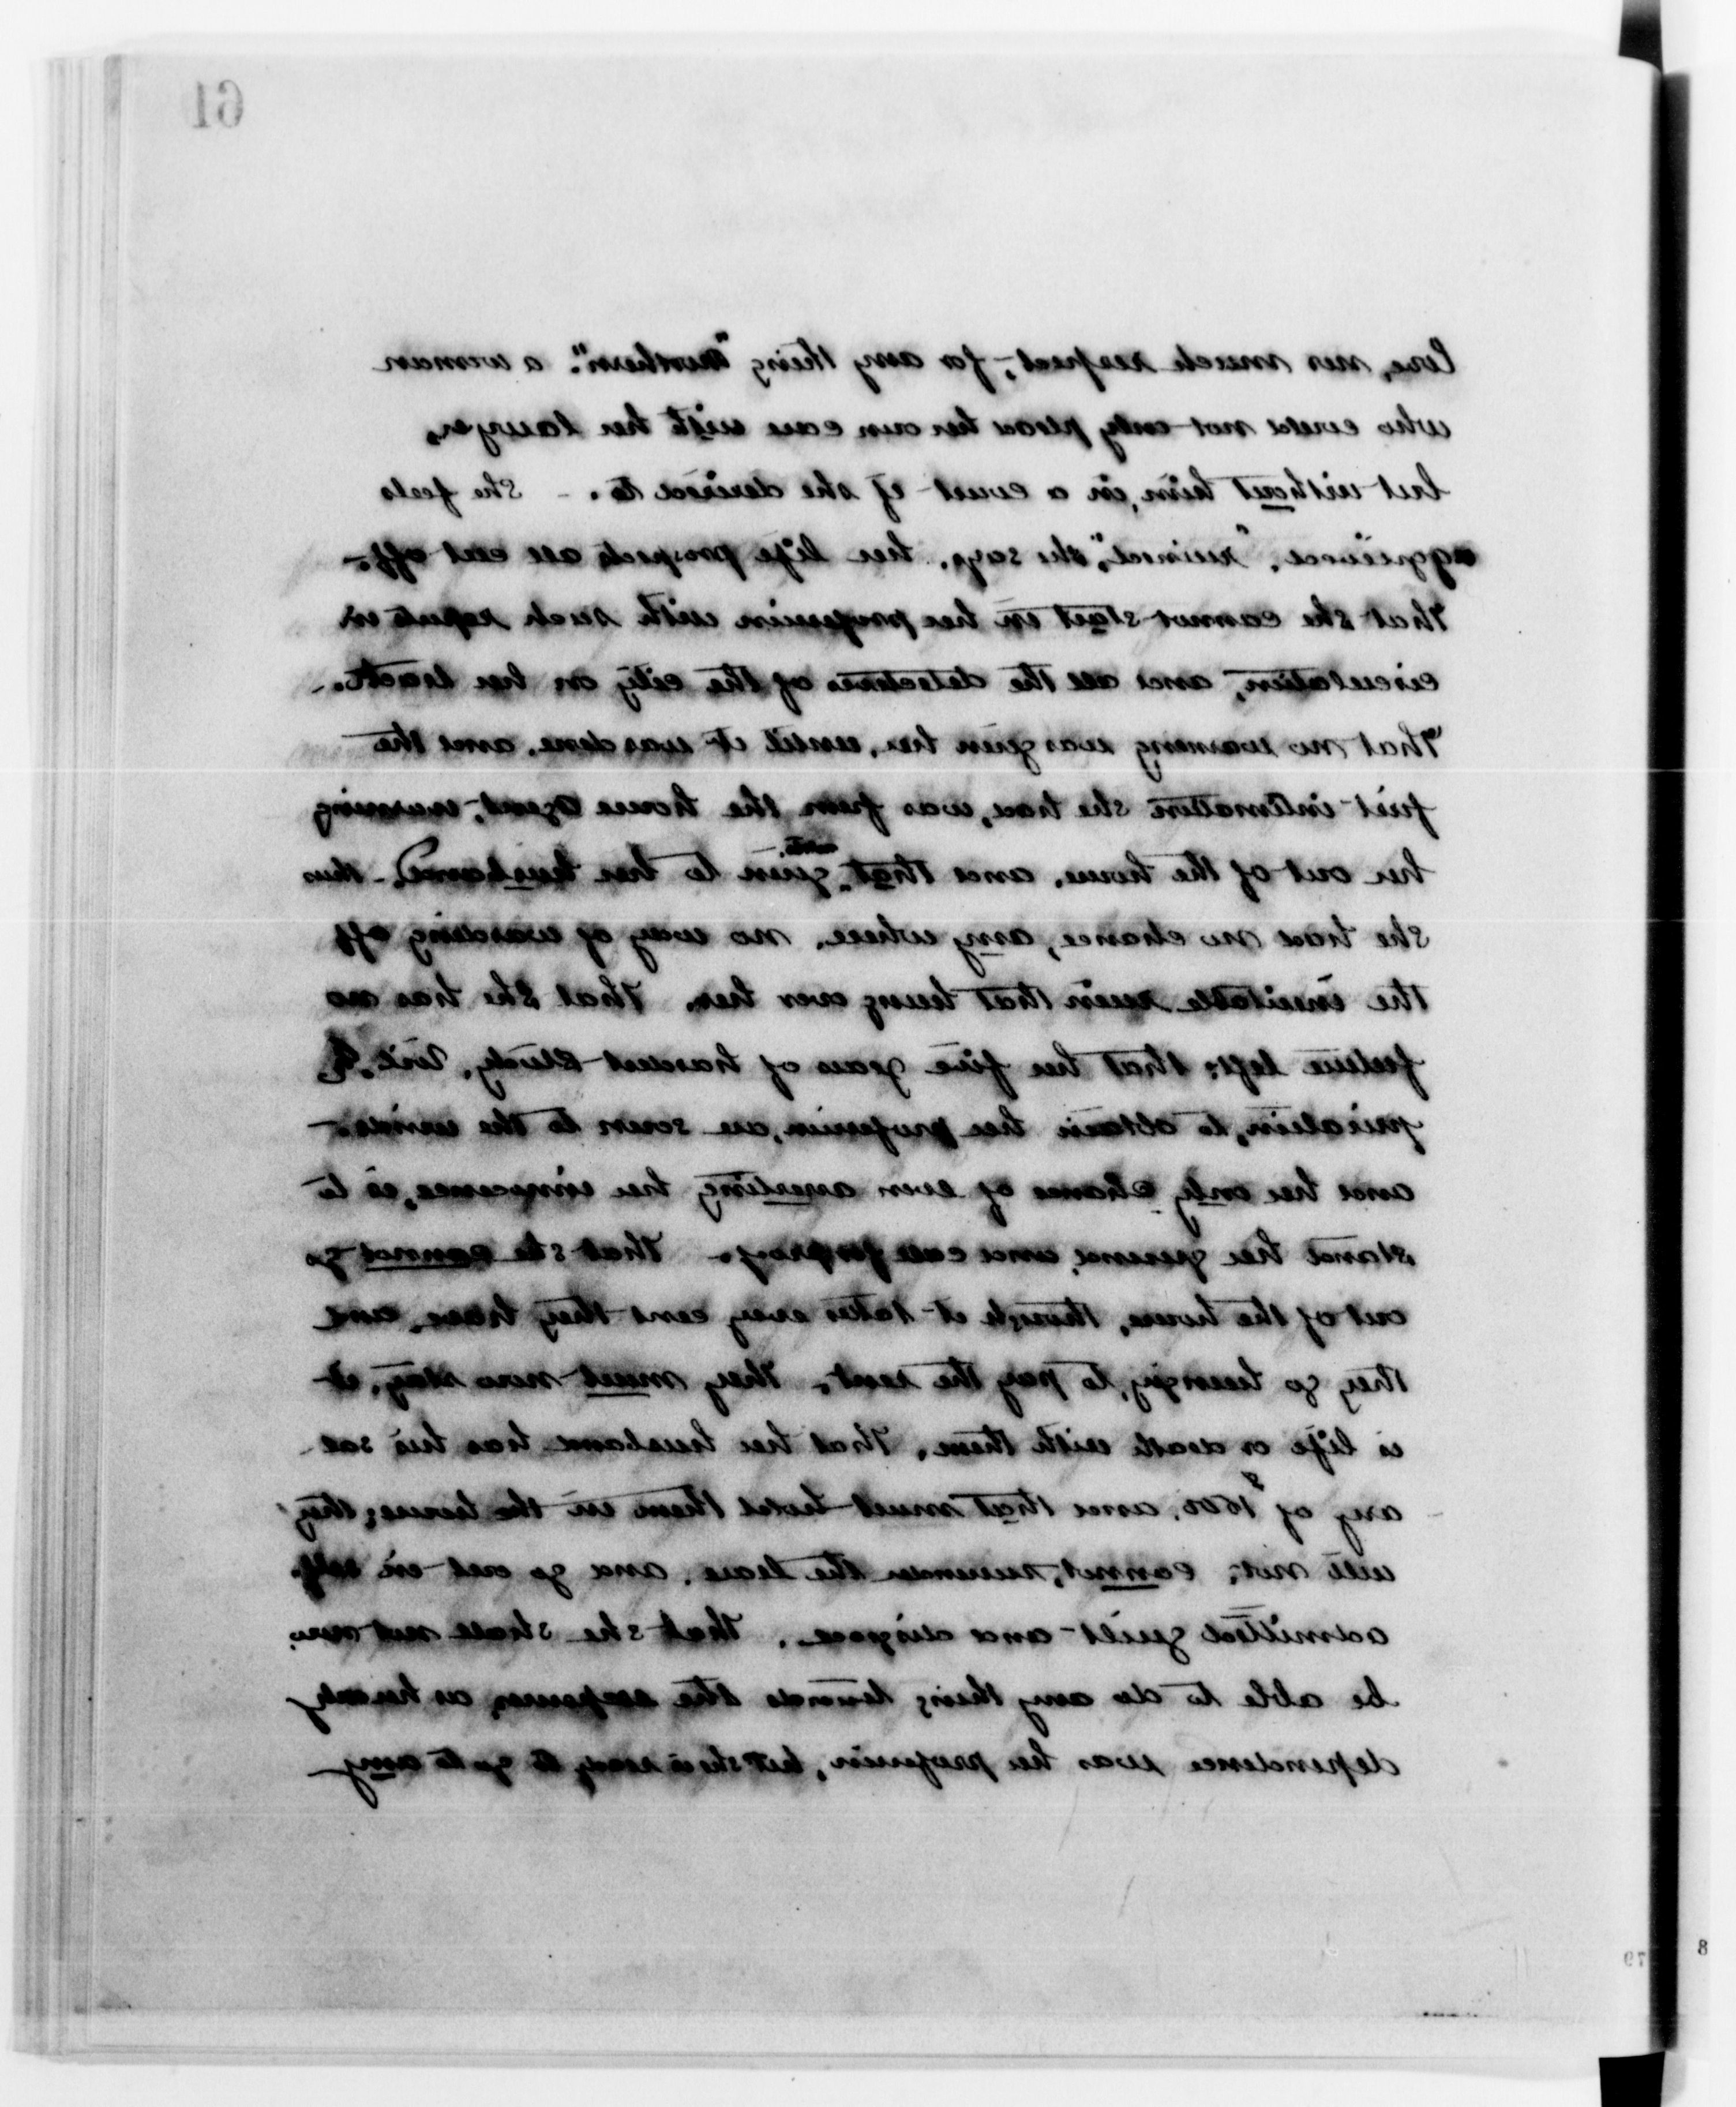 61
love, nor much respect, for any thing "northern". a woman
who could not only plead her own case with her lawyer,
but without him, in a court if she desired to. - She feels
aggrieved, "ruined", she says. her life prospects all cut off.-
That she cannot start in her profession with such reports in
circulation, and all the detectives of the city on her track.-
That no warning was given her, until it was done, and the
first intimation she had, was from the house agent, warning
her out of the house, and that given to her husband, thus
she had no chance, any where, no way of warding off
the inevitable ruin that hung over her. That she has no
future left: that her five years of hardest study, toil, &
privation, to obtain her profession, are sown to the winds.-
and her only chance of even asserting her innocence, is to
stand her ground, and call for proof. That she cannot go
out of the house, though it takes every cent they have, and
they go hungry, to pay the rent. They must now stay, it
is life or death with them. That her husband has his sal
ary of $1600. and that must hold them in the house; they
will not; cannot, surrender the lease, and go out in self
admitted guilt and disgrace. That she shall not now
be able to do any thing towards the expenses, as her only
dependence was her profession, but she is ready to go to any
79
8